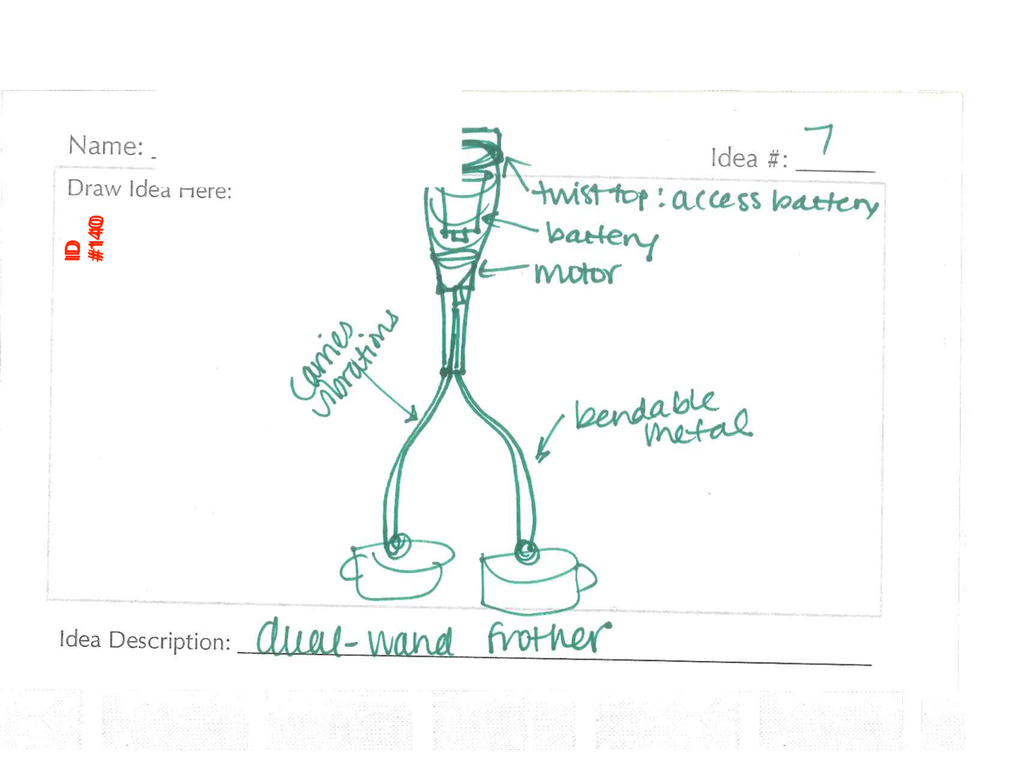 Name:
Idea #: 7
Draw Idea Here:
ID
#140
twist top: access battery
battery
motor
carries
vibrations
bendable
metal
Idea Description: dual-wand frother